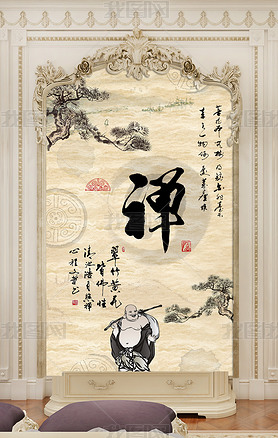 菩提本无树明镜亦非台
本来无一物何处惹尘埃
禅
翠竹黄花
皆佛性
清池皓月照禅
心